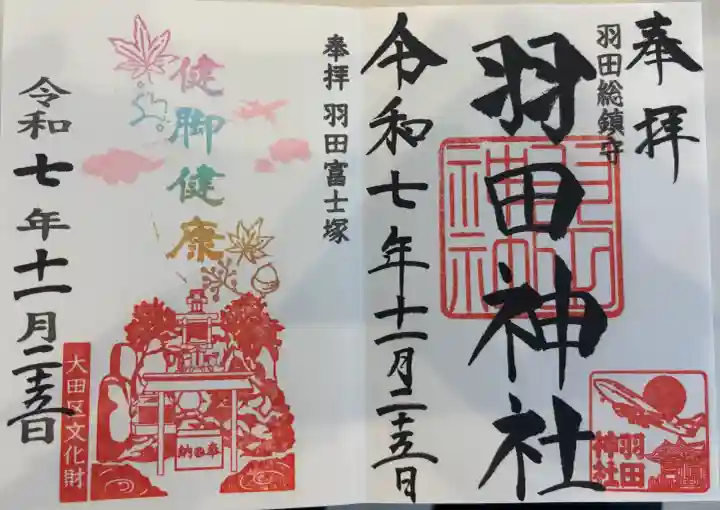 奉拝
羽田総鎮守
羽田神社
羽田神社
羽田神社
令和七年十一月二十五日
奉拝 羽田富士塚
健脚健康
奉納
大田区文化財
令和七年十一月二十五日